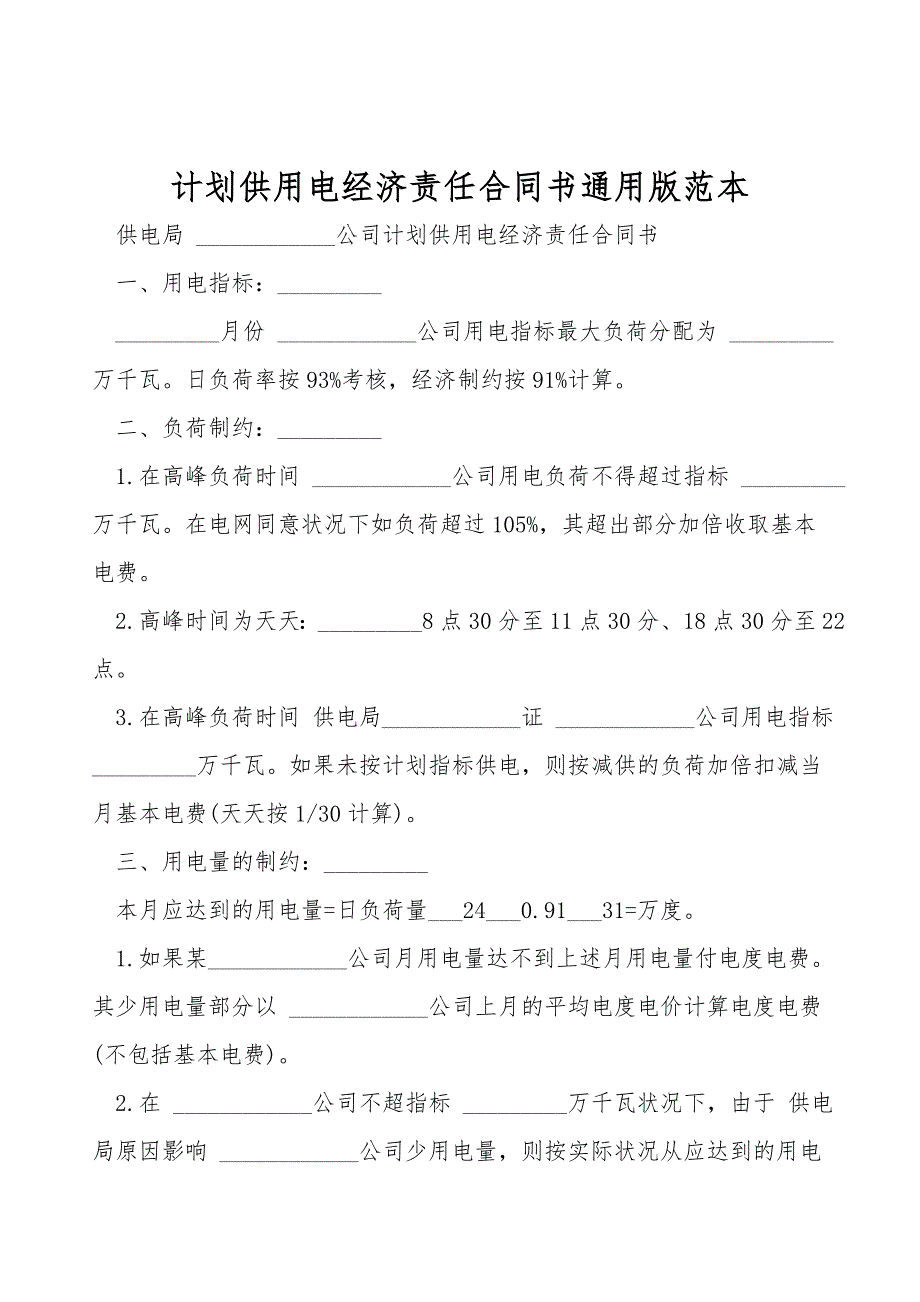 计划供用电经济责任合同书通用版范本
供电局 ____________公司计划供用电经济责任合同书
一、用电指标：_________
_________月份 ____________公司用电指标最大负荷分配为 _________
万千瓦。日负荷率按93%考核，经济制约按91%计算。
二、负荷制约：_________
1.在高峰负荷时间 ____________公司用电负荷不得超过指标 _________
万千瓦。在电网同意状况下如负荷超过105%，其超出部分加倍收取基本
电费。
2.高峰时间为天天：_________8点30分至11点30分、18点30分至22
点。
3.在高峰负荷时间 供电局____________证 ____________公司用电指标
_________万千瓦。如果未按计划指标供电，则按减供的负荷加倍扣减当
月基本电费(天天按1/30计算)。
三、用电量的制约：_________
本月应达到的用电量=日负荷量___24___0.91___31=万度。
1.如果某____________公司月用电量达不到上述月用电量付电度电费。
其少用电量部分以 ____________公司上月的平均电度电价计算电度电费
(不包括基本电费)。
2.在 ____________公司不超指标 _________万千瓦状况下，由于 供电
局原因影响 ____________公司少用电量，则按实际状况从应达到的用电